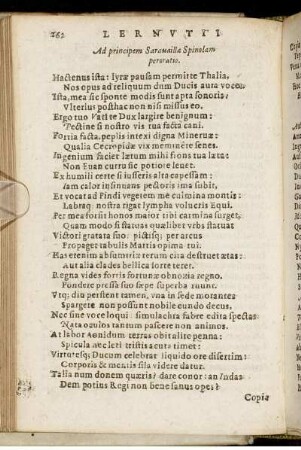 162 LERNVTII
Ad principem Saravallæ Spinolam
peroratio.
Hactenus ista: lyræ pausam permitte Thalia,
Nos opus ad reliquum dum Ducis aura vocat.
Ista, mea sic sponte modis sunt apta sonoris:
Vlterius posthac non nisi missus eo.
Ergo tuo Vati te Dux largire benignum:
Pectine si nostro vis tua facta cani.
Fortia facta, peplis intexi digna Mineruæ:
Qualia Cecropidæ vix meminere senes.
Ingenium facies lætum mihi fions tua læta:
Non Euan cursu sic potiore leuet.
Ex humili certe si iusseris alta capessam:
Iam calor insinuans pectoris ima subit,
Et vocat ad Pindi vegetem me culmina montis:
Labraq; nostra rigat lympha volucris Equi.
Per me forsit honos maior tibi carmina surget,
Quam modo si statuas quælibet vrbs statuat
Victori gratata suo: pictisq; per arcus
Propaget tabulis Martis opima tui.
Has etenim absumit a rerum cita destruet ætas:
Aut alia clades bellica sorte teret.
Regna vides fortis fortunæ obnoxia regno,
Pondere pressa suo sæpe superba ruunt.
Vtq; diu perstent tamen, vna in sede morantes
Spargere non possunt nobile eundo decus.
Nec sine voce loqui simulachra fabre edita spectas
Nata oculos tantum pascere non animos.
At labor Aonidum terras obit vltæ penna:
Spicula nec leti tristis acuta timet:
Virtutesq; Ducum celebrat liquido ore disertim:
Corporis & mentis fila videre datur.
Talia num donem quæris? dare conor: an Indas
Dem potius Regi non bene sanus opes?
Copia